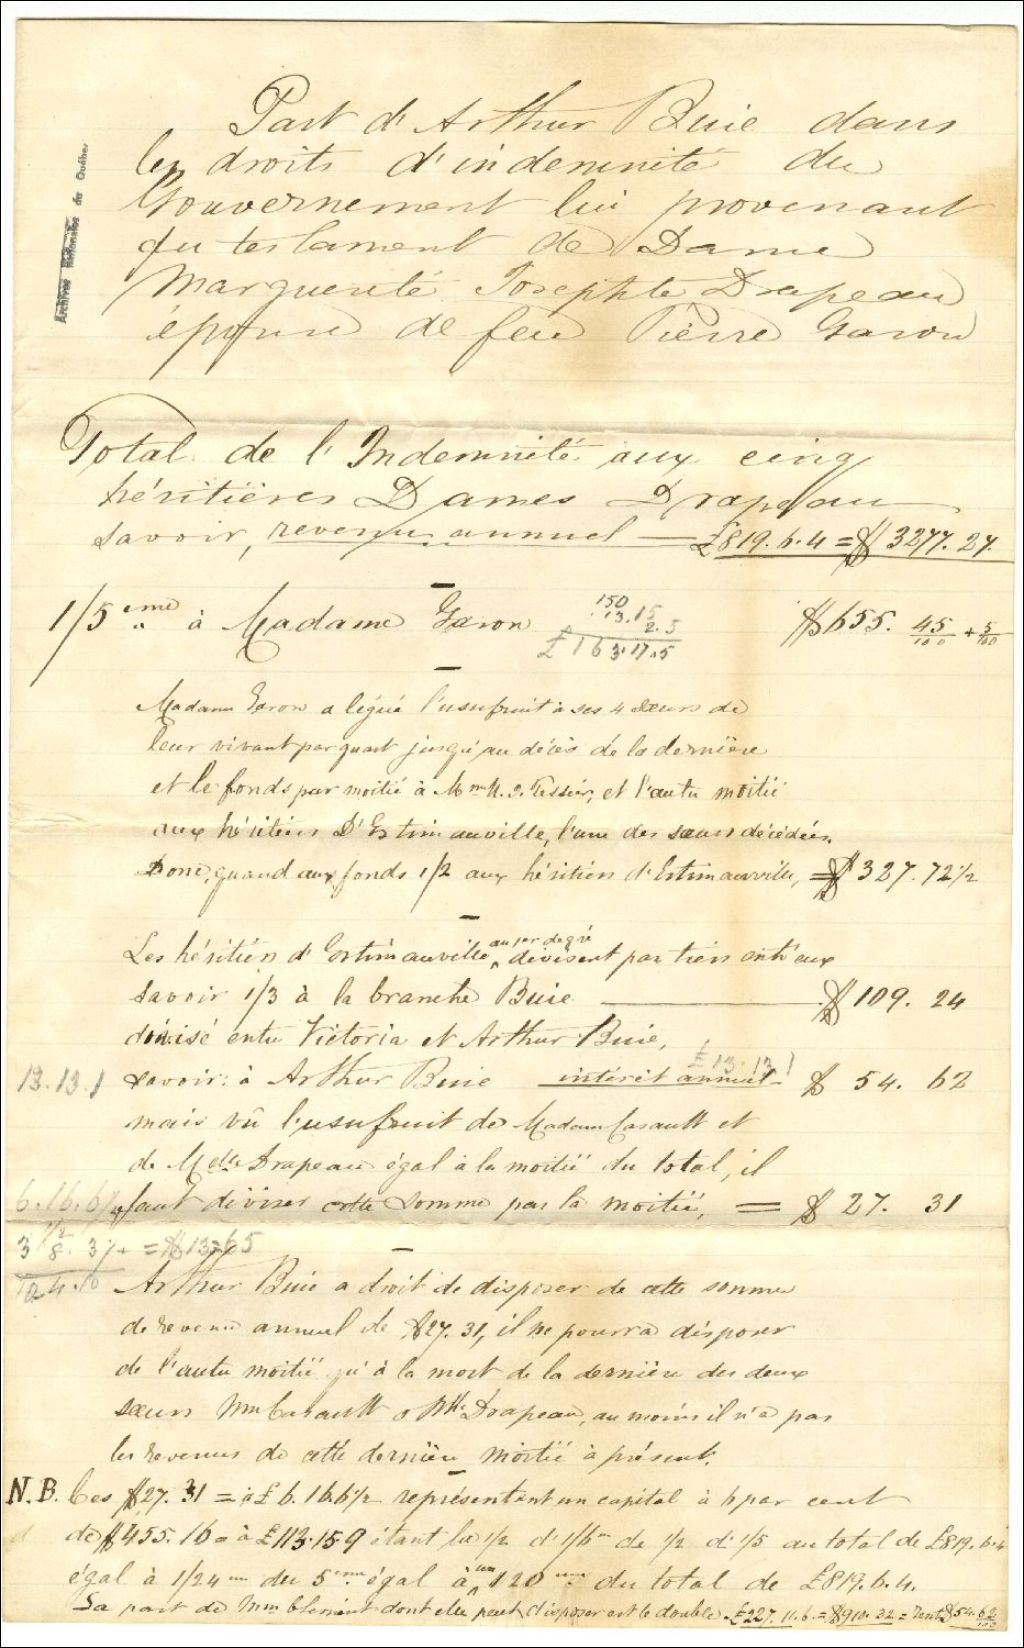 Archives Nationales du Québec
Part d'Arthur Buie dans
les droits d'indemnité du
Gouvernement lui provenant
du testament de Dame
Marguerite Josephte Drapeau
épouse de feu Pierre Garon
Total de l'Indemnité aux cinq
héritières Dames Drapeau
savoir, revenu annuel — £819.6.4 = $3277.27.
1/5 eme à Madame Garon $655. 45/100 + 5/100
150
13.15
2.5
£163.17.5
Madame Garon a légué l'usufruit à ses 4 soeurs de
leur vivant par quart jusqu'au décès de la dernière
et le fonds par moitié à Mme U. J. Tessier, et l'autre moitié
aux héritiers D'Estimauville, l'une des soeurs décédées.
Donc, quand aux fonds 1/2 aux héritiers d'Estimauville, = $327.72 1/2
Les héritiers d'Estimauville au 1er degré divisent par tiers entr'eux
savoir 1/3 à la branche Buie — $109. 24
divisé entre Victoria et Arthur Buie,
£13.13.1
13.13.1 savoir: à Arthur Buie intérêt annuel - $ 54. 62
mais vû l'usufruit de Madame Casault et
de Melle Drapeau égal à la moitié du total, il
6.16.6 1/2 faut diviser cette somme par la moitié, = $ 27. 31
3 8. 3 1/4 = $13=65
Arthur Buie a droit de disposer de cette somme
de revenu annuel de $27.31, il ne pourra disposer
de l'autre moitié qu'à la mort de la dernière des deux
soeurs Mme Casault & Mlle Drapeau, au moins il n'a pas
les revenus de cette dernière moitié à présent.
N.B. Ces $27.31 = à £6.16.6 1/2 représentent un capital à 6 par cent
de $455.16 = à £113.15.9 étant la 1/2 d'1/6 de 1/2 d'1/5 au total de £819.6.4
égal à 1/24 du 5ème égal à un 120 du total de £819.6.4.
La part de Mme Clément dont elle peut disposer est le double £227.11.6. = $910.32 = Rente $54.62/100